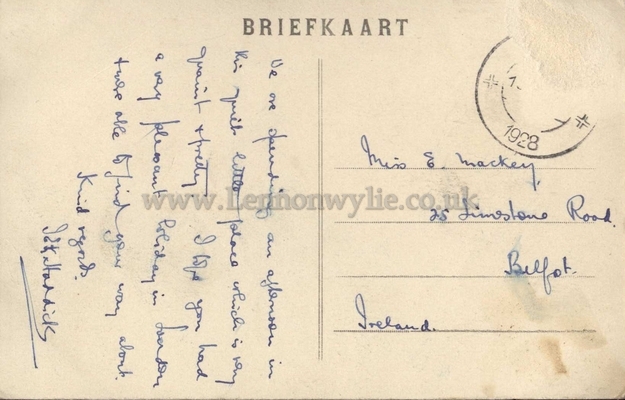 BRIEFKAART
We are spending an afternoon in
this quiet little place which is very
quaint & pretty. I hope you had
a very pleasant holiday in London
& were able to find your way about.
Kind regards.
Haddick
1928
Miss E. Mackey,
25 Limestone Road.
Belfast.
Ireland.
www.Lennonwylie.co.uk